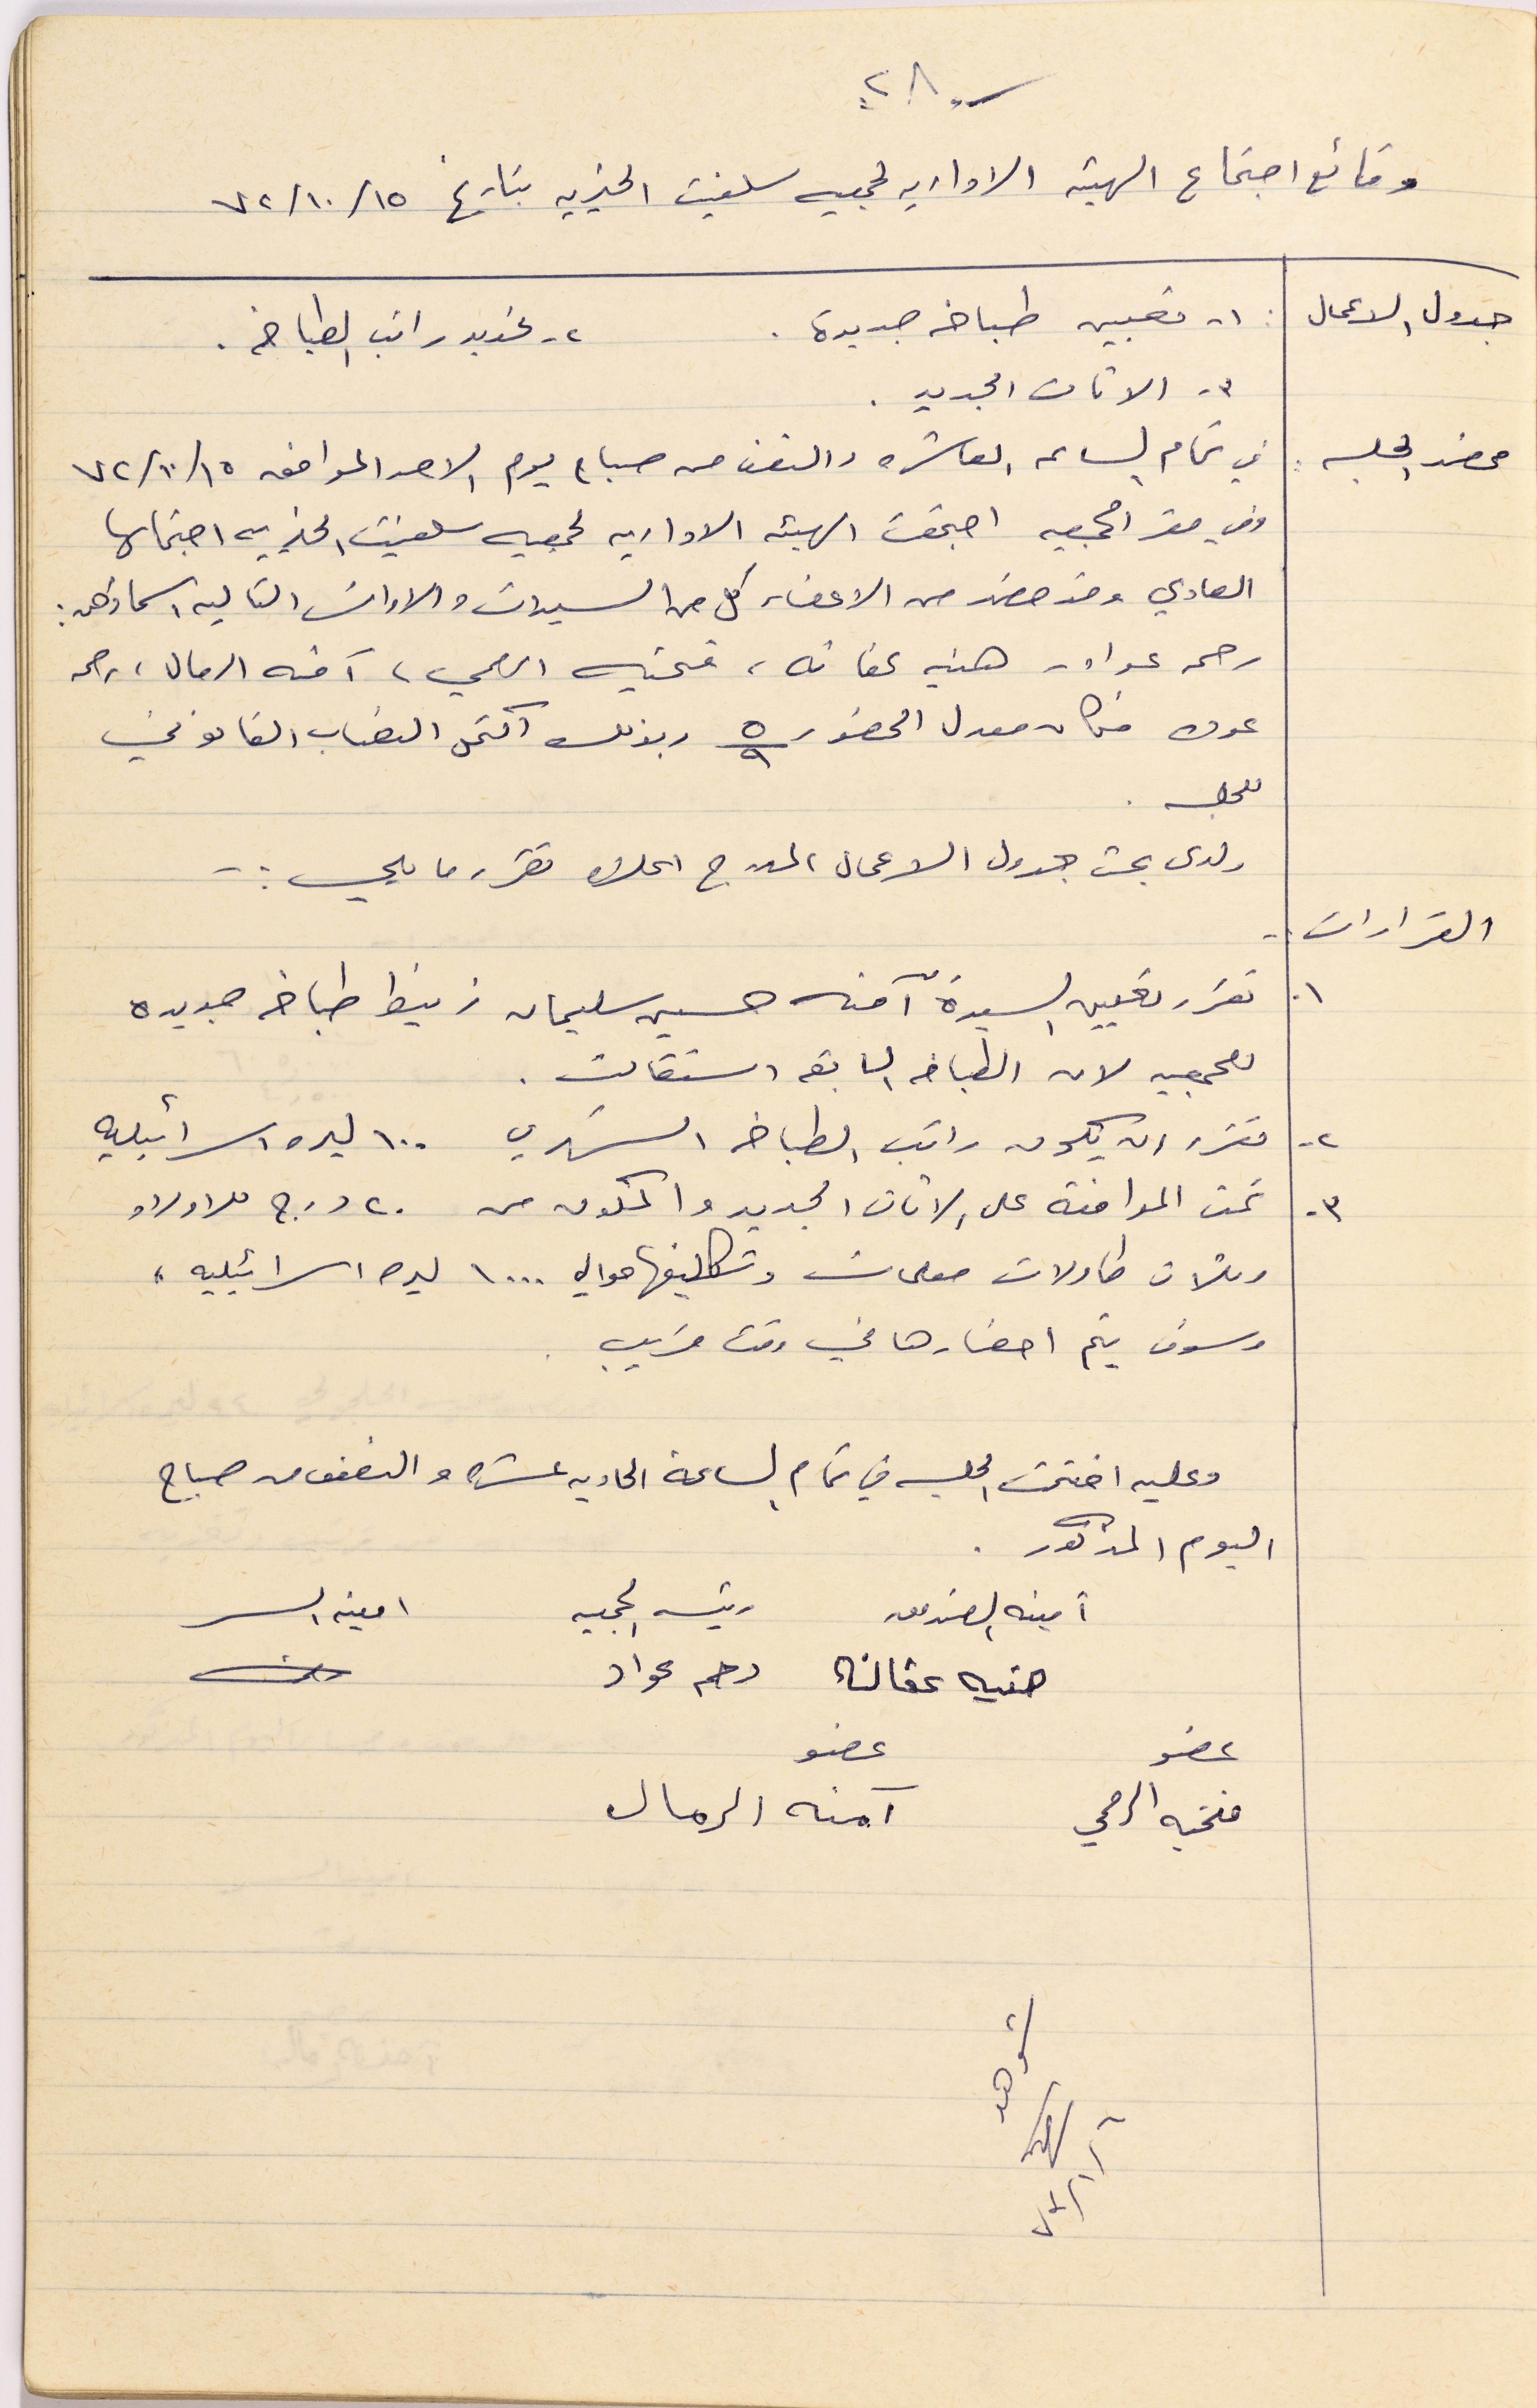 ٢٨
وقائع اجتماع الهيئه الاداريه لجمعيه سلفيت الخيريه بتاريخ ١٥/١٠/٧٢
جدول الاعمال : ١- تعيين طباخه جديدة . ٢- تحديد راتب الطباخه .
٣- الاثاث الجديد .
محضر الجلسه : في تمام الساعه العاشره والنصف من صباح يوم الاحد الموافق ١٥/١٠/٧٢
وفي مقر الجمعيه اجتمعت الهيئه الاداريه لجمعيه سلفيت الخيريه اجتماعها
العادي وقد حضر من الاعضاء كل من السيدات والاوانس التاليه اسماؤهن :
رحمه عواد، هنيه عفانه، فتحيه الرمحي، آمنه الرمال، رحمه
عوده فكان معدل الحضور ٥/٩ وبذلك اكتمل النصاب القانوني
للجلسه .
ولدى بحث جدول الاعمال المدرج اعلاه تقرر ما يلي :-
القرارات :-
١. تقرر تعيين السيدة آمنه حسين سليمان طباخه جديده
للجمعيه لان الطباخه السابقه استقالت .
٢- تقرر ان يكون راتب الطباخه الشهري ١٠٠ ليره اسرائيليه
٣- تمت الموافقة على الاثاث الجديد والمكون من ٢٠ درج للاولاد
وثلاث طاولات معلمات وتكاليفها حوالي ١٠٠٠ ليره اسرائيليه ،
وسوف يتم احضارها في وقت قريب .
وعليه اختتمت الجلسه في تمام الساعة الحاديه عشره والنصف من صباح
اليوم المذكور .
أمينه الصندوق رئيسه الجمعيه امينه السر
هنيه عفانه رحمه عواد
عضو عضو
فتحيه الرمحي آمنه الرمال
شوهد